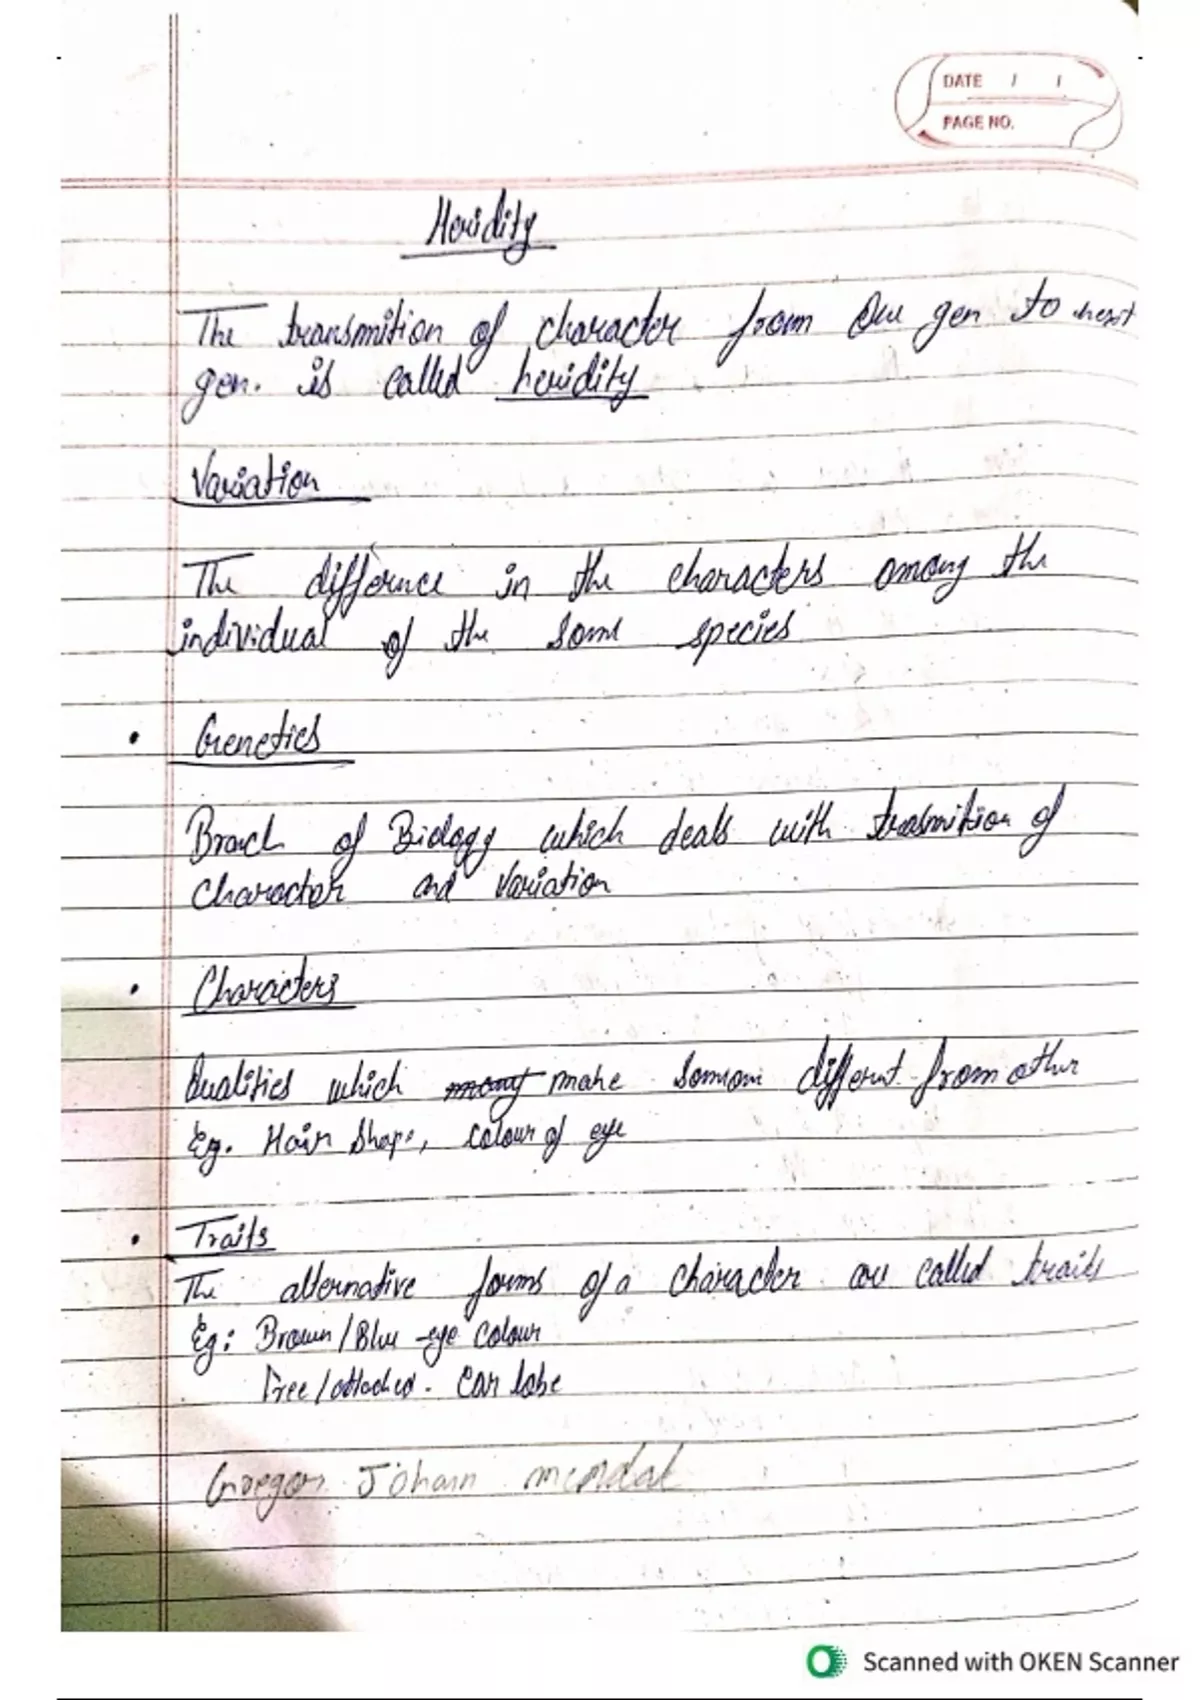 DATE / /
PAGE NO.
Heridity
The transmition of character from one gen to next
gen. is called heridity
Variation
The differnce in the characters among the
individual of the same species
• Genetics
Brach of Biology which deals with trasmition of
Character and Variation
• Characters
Qualities which many make somone different from other
Eg. Hair Shape, colour of eye
• Traits
The alternative forms of a character are called traits
Eg: Brown/Blue -eye colour
Free/attached. Ear lobe
Gregor Johann mendal
Scanned with OKEN Scanner